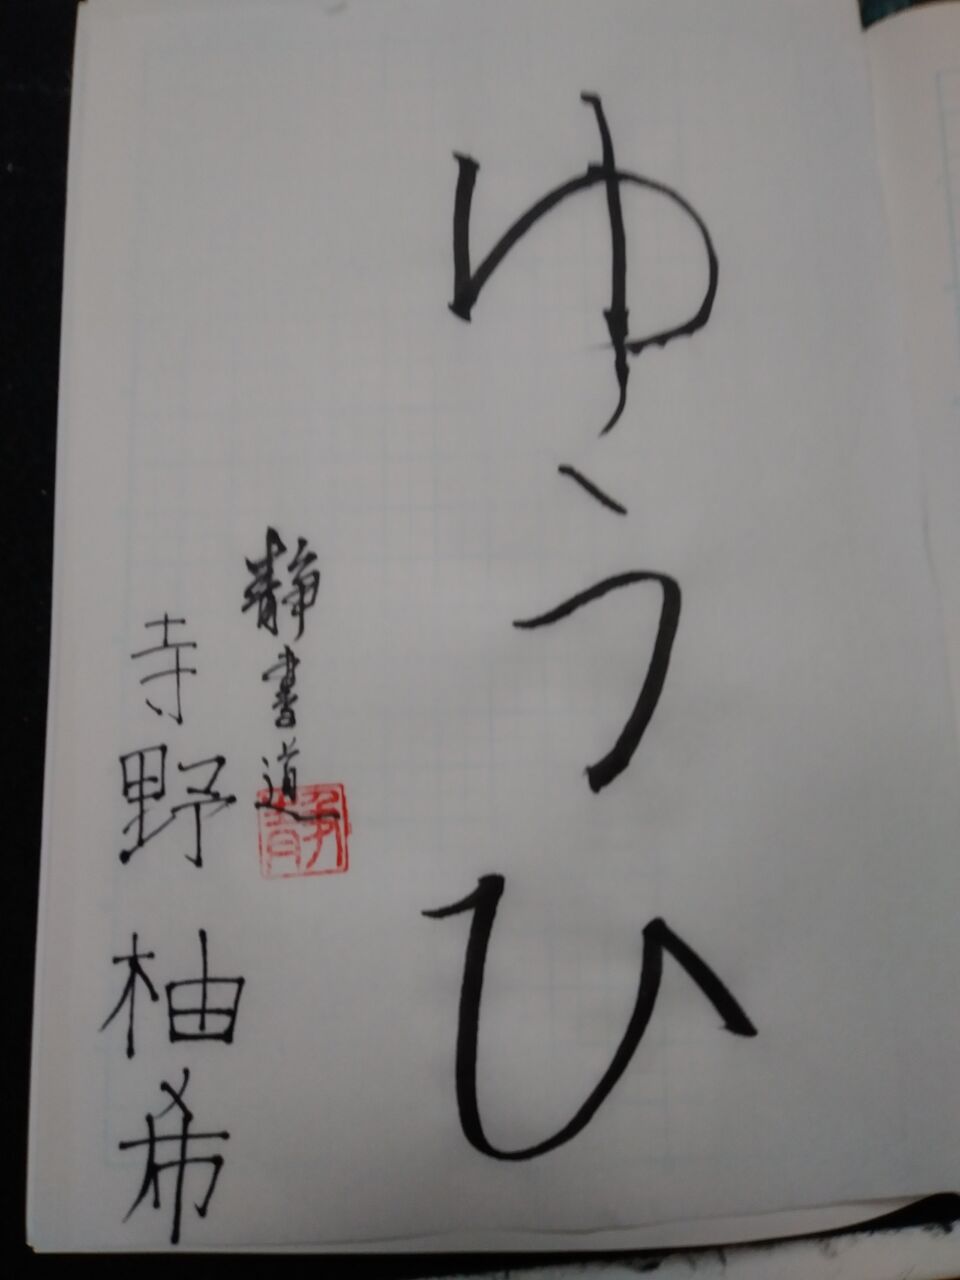 ゆうひ
静書道
静
寺野柚希